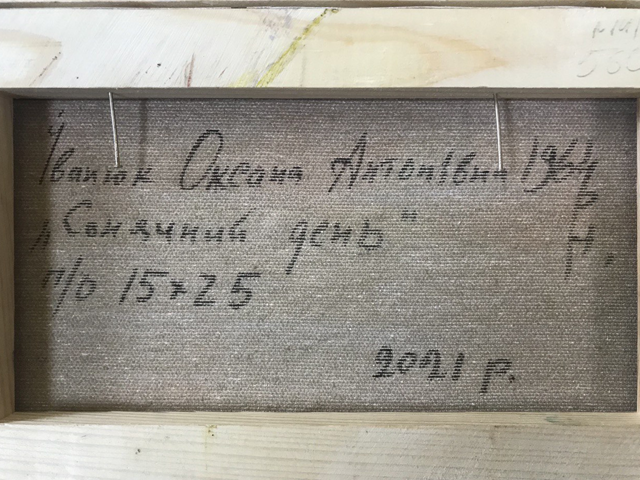 Іванюк Оксана Антонівна 1964 р н.
„Сонячний день"
п/о 15×25
2021 р.